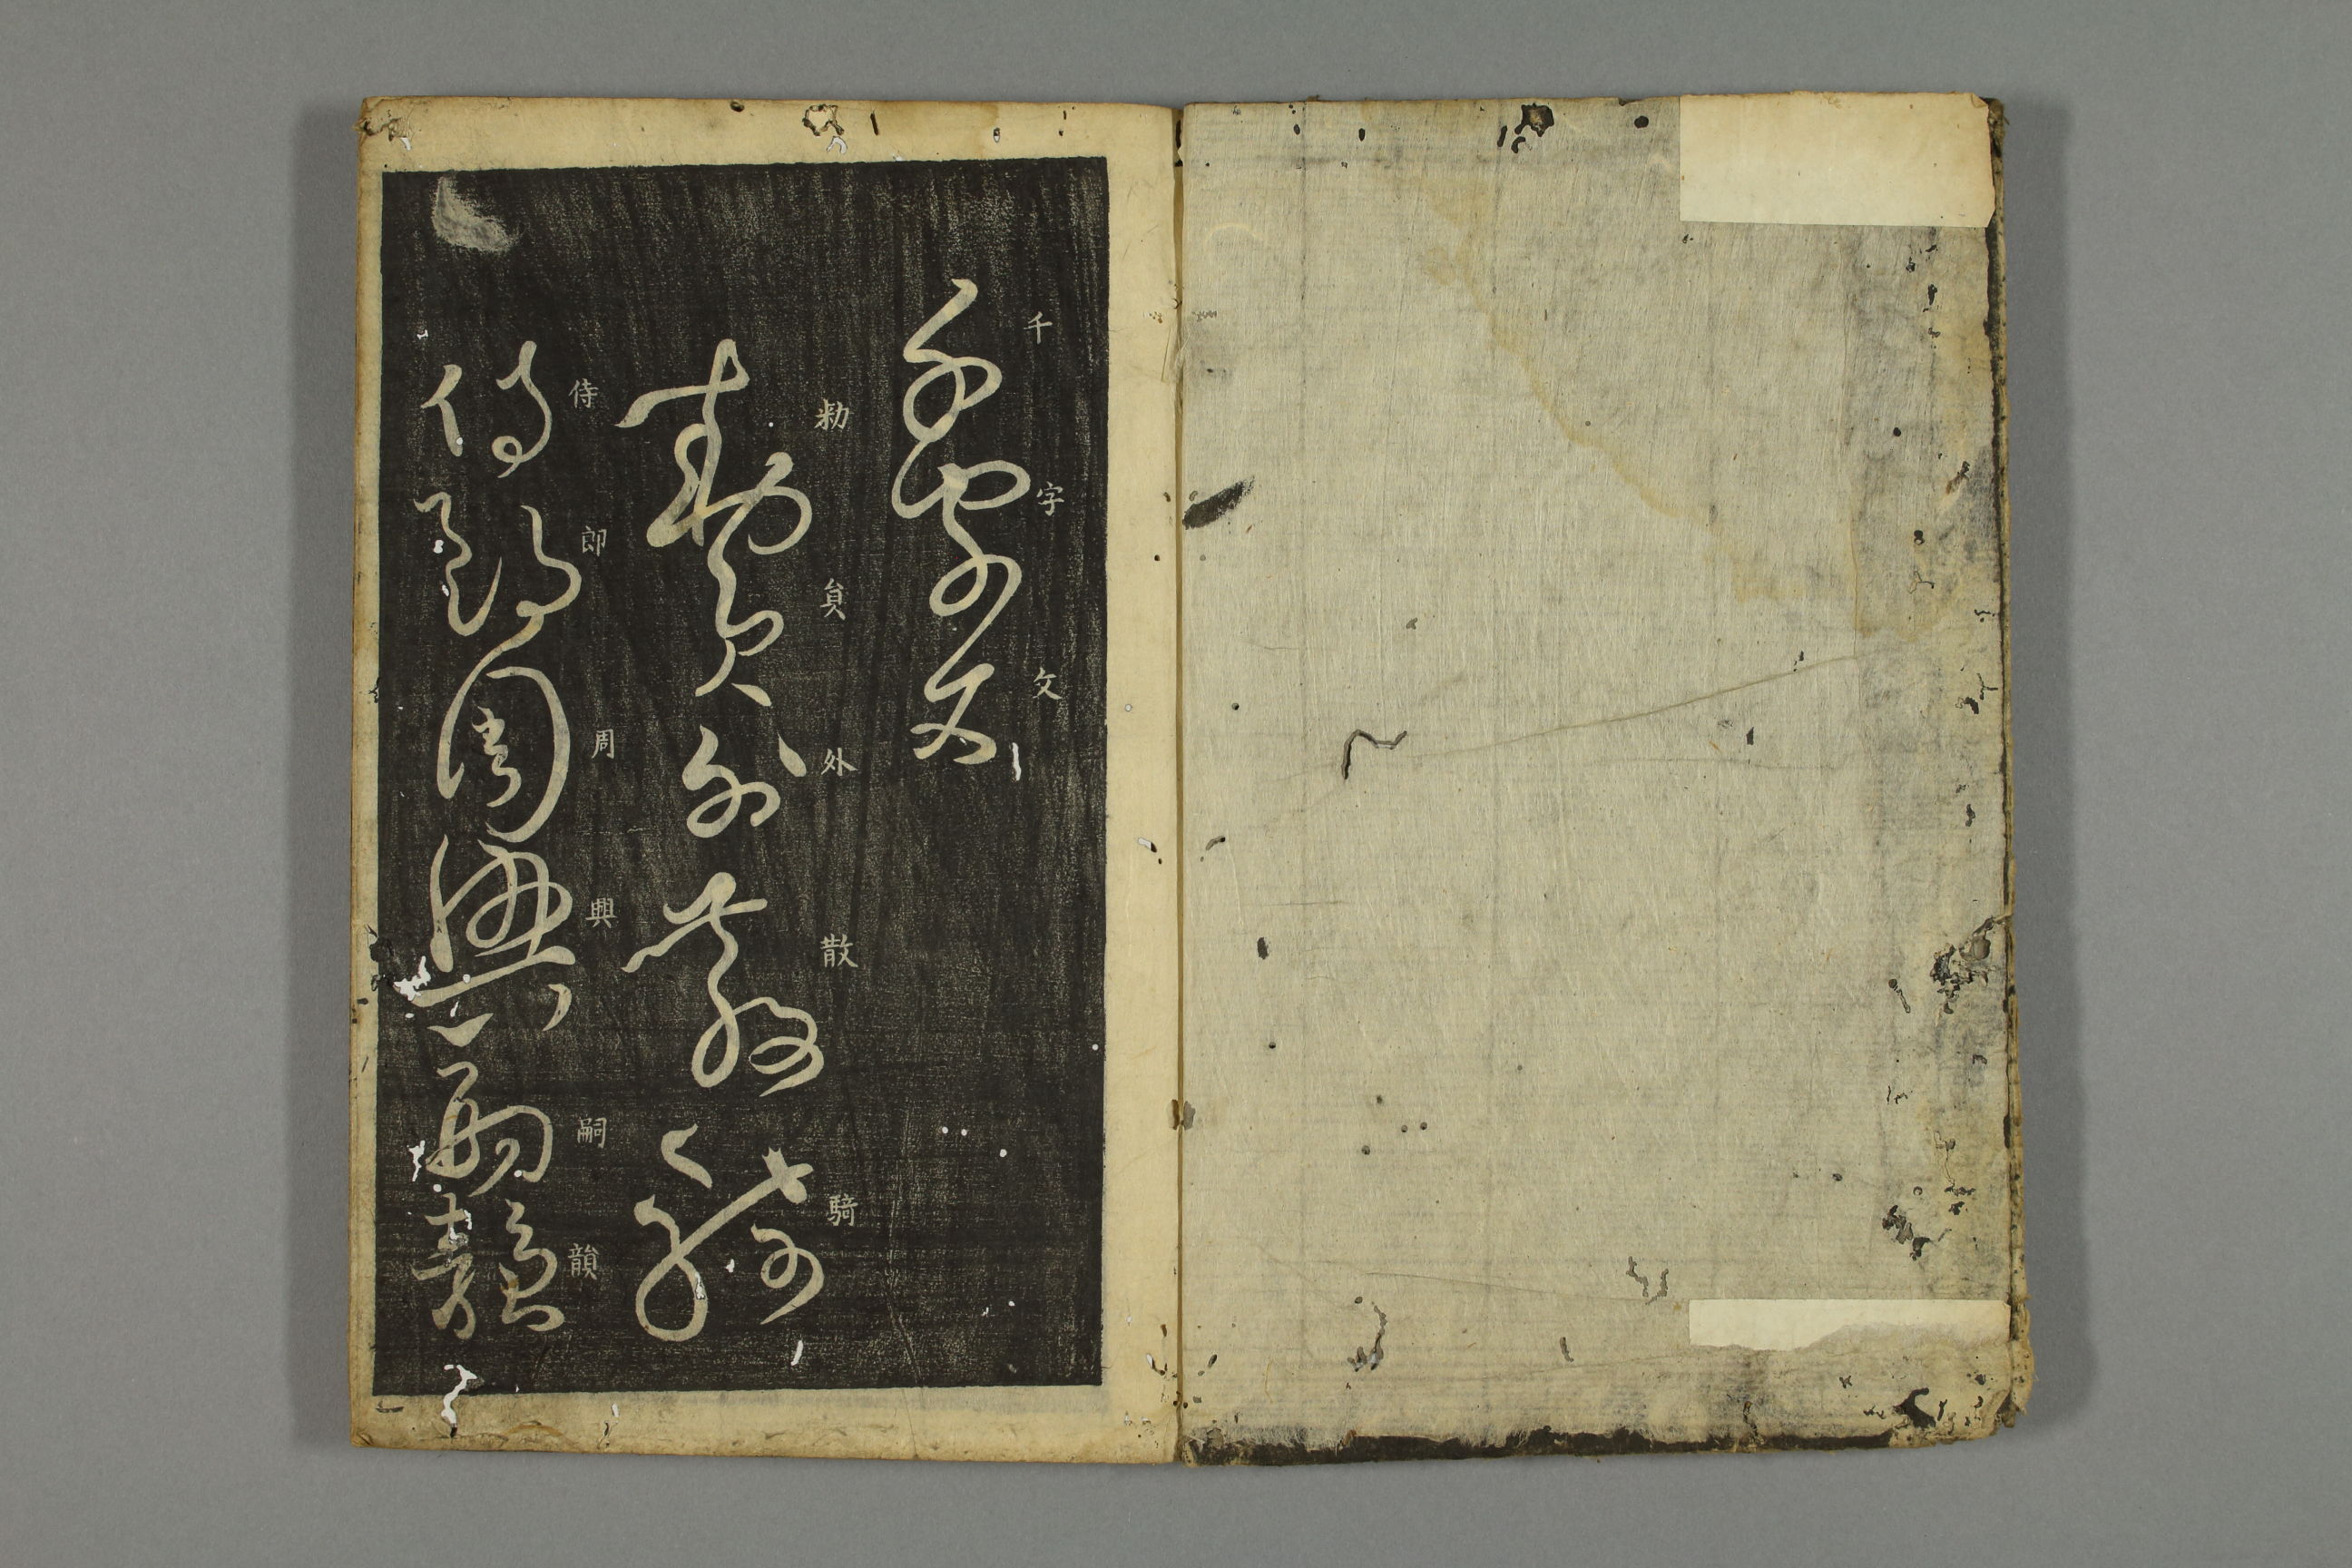 千字文
千字文
勑貟外散騎
勑貟外散騎
侍郎周興嗣韻
侍郎周興嗣韻